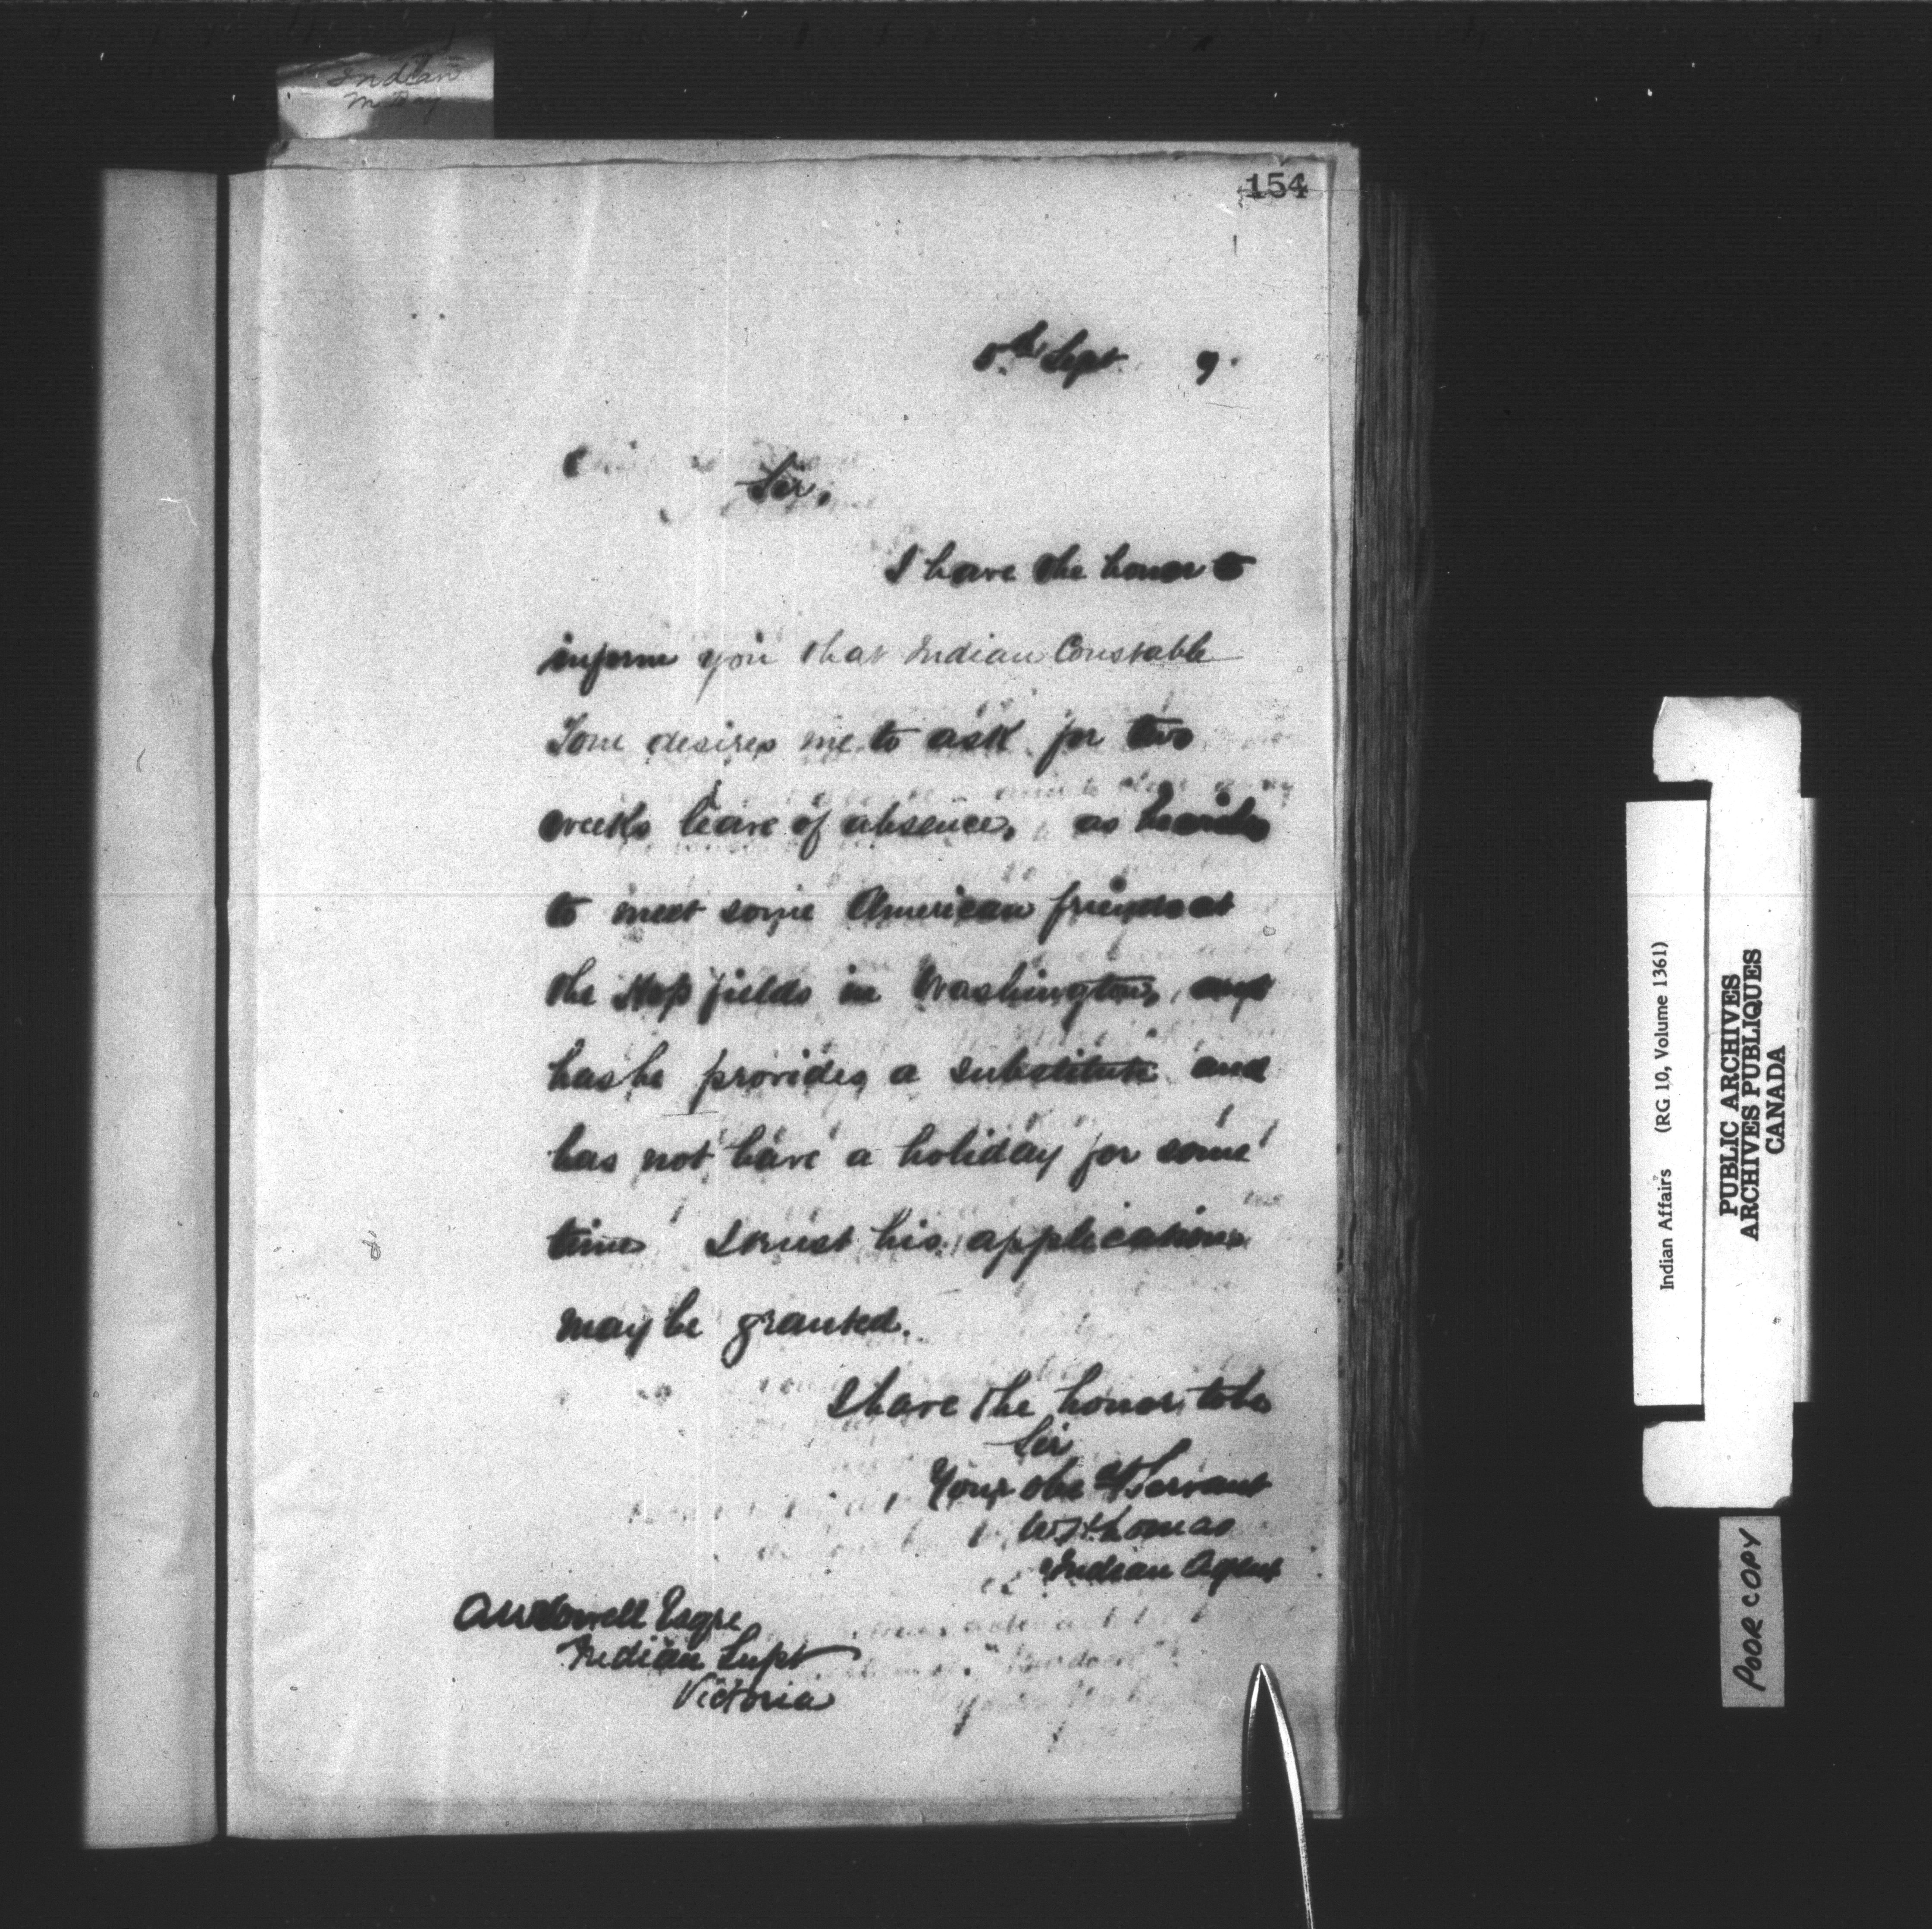 Indian
154
5th Sept. 9.
Sir,
I have the honor to
inform you that Indian Constable
Tom desires me to ask for two
weeks leave of absence, as he wishes
to meet some American friends at
the Hop fields in Washington, and
has he provides a substitute and
has not have a holiday for some
time I trust his application
may be granted.
I have the honor to be
Sir
Your obedt Servant
Thomas
Indian Agent
A W Vowell Esqre
Indian Supt
Victoria
Indian Affairs (RG 10, Volume 1361)
PUBLIC ARCHIVES
ARCHIVES PUBLIQUES
CANADA
POOR COPY